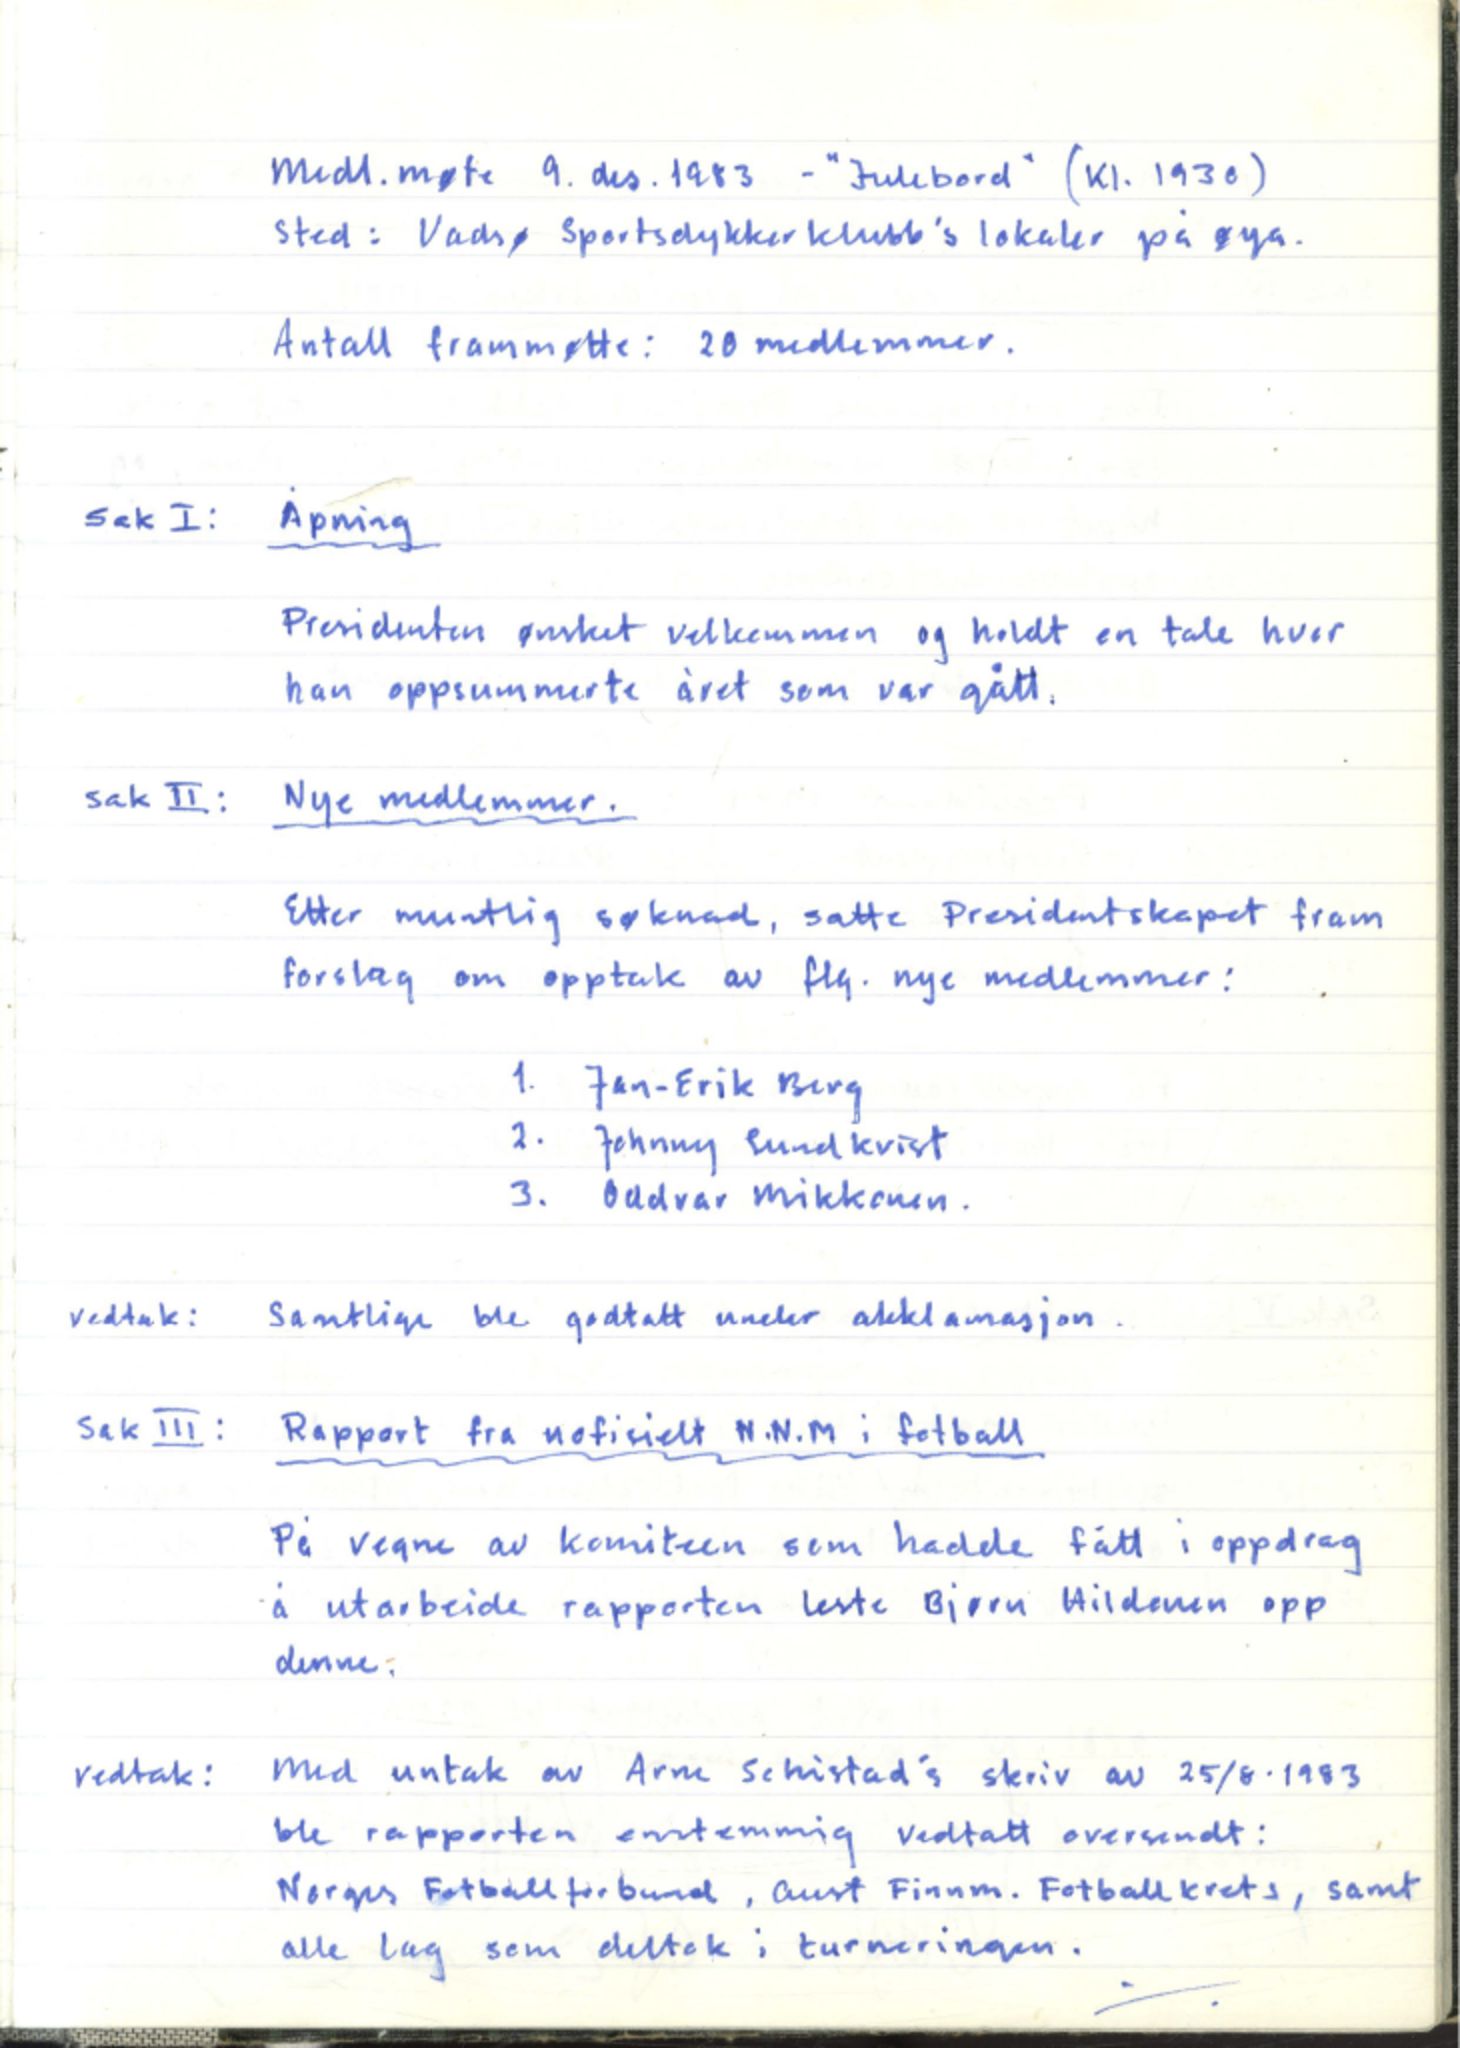 Medl.møte 9. des. 1983 - "Julebord" (Kl. 1930)
Sted: Vadsø Sportsdykkerklubb's lokaler på øya.
Antall frammøtte: 20 medlemmer.
Sak I: Åpning
Presidenten ønsket velkommen og holdt en tale hvor
han oppsummerte året som var gått.
Sak II: Nye medlemmer.
Etter muntlig søknad, satte Presidentskapet fram
forslag om opptak av flg. nye medlemmer:
1. Jan-Erik Berg
2. Johnny Sundkvist
3. Oddvar Mikkonen.
Vedtak: Samtlige ble godtatt under akklamasjon.
Sak III: Rapport fra uofisielt N.N.M i fotball
På vegne av komiteen som hadde fått i oppdrag
å utarbeide rapporten leste Bjørn Hildonen opp
denne.
Vedtak: Med untak av Arne Schistad's skriv av 25/8-1983
ble rapporten enstemmig vedtatt oversendt:
Norges Fotballforbund, Aust Finnm. Fotballkrets, samt
alle lag som deltok i turneringen.